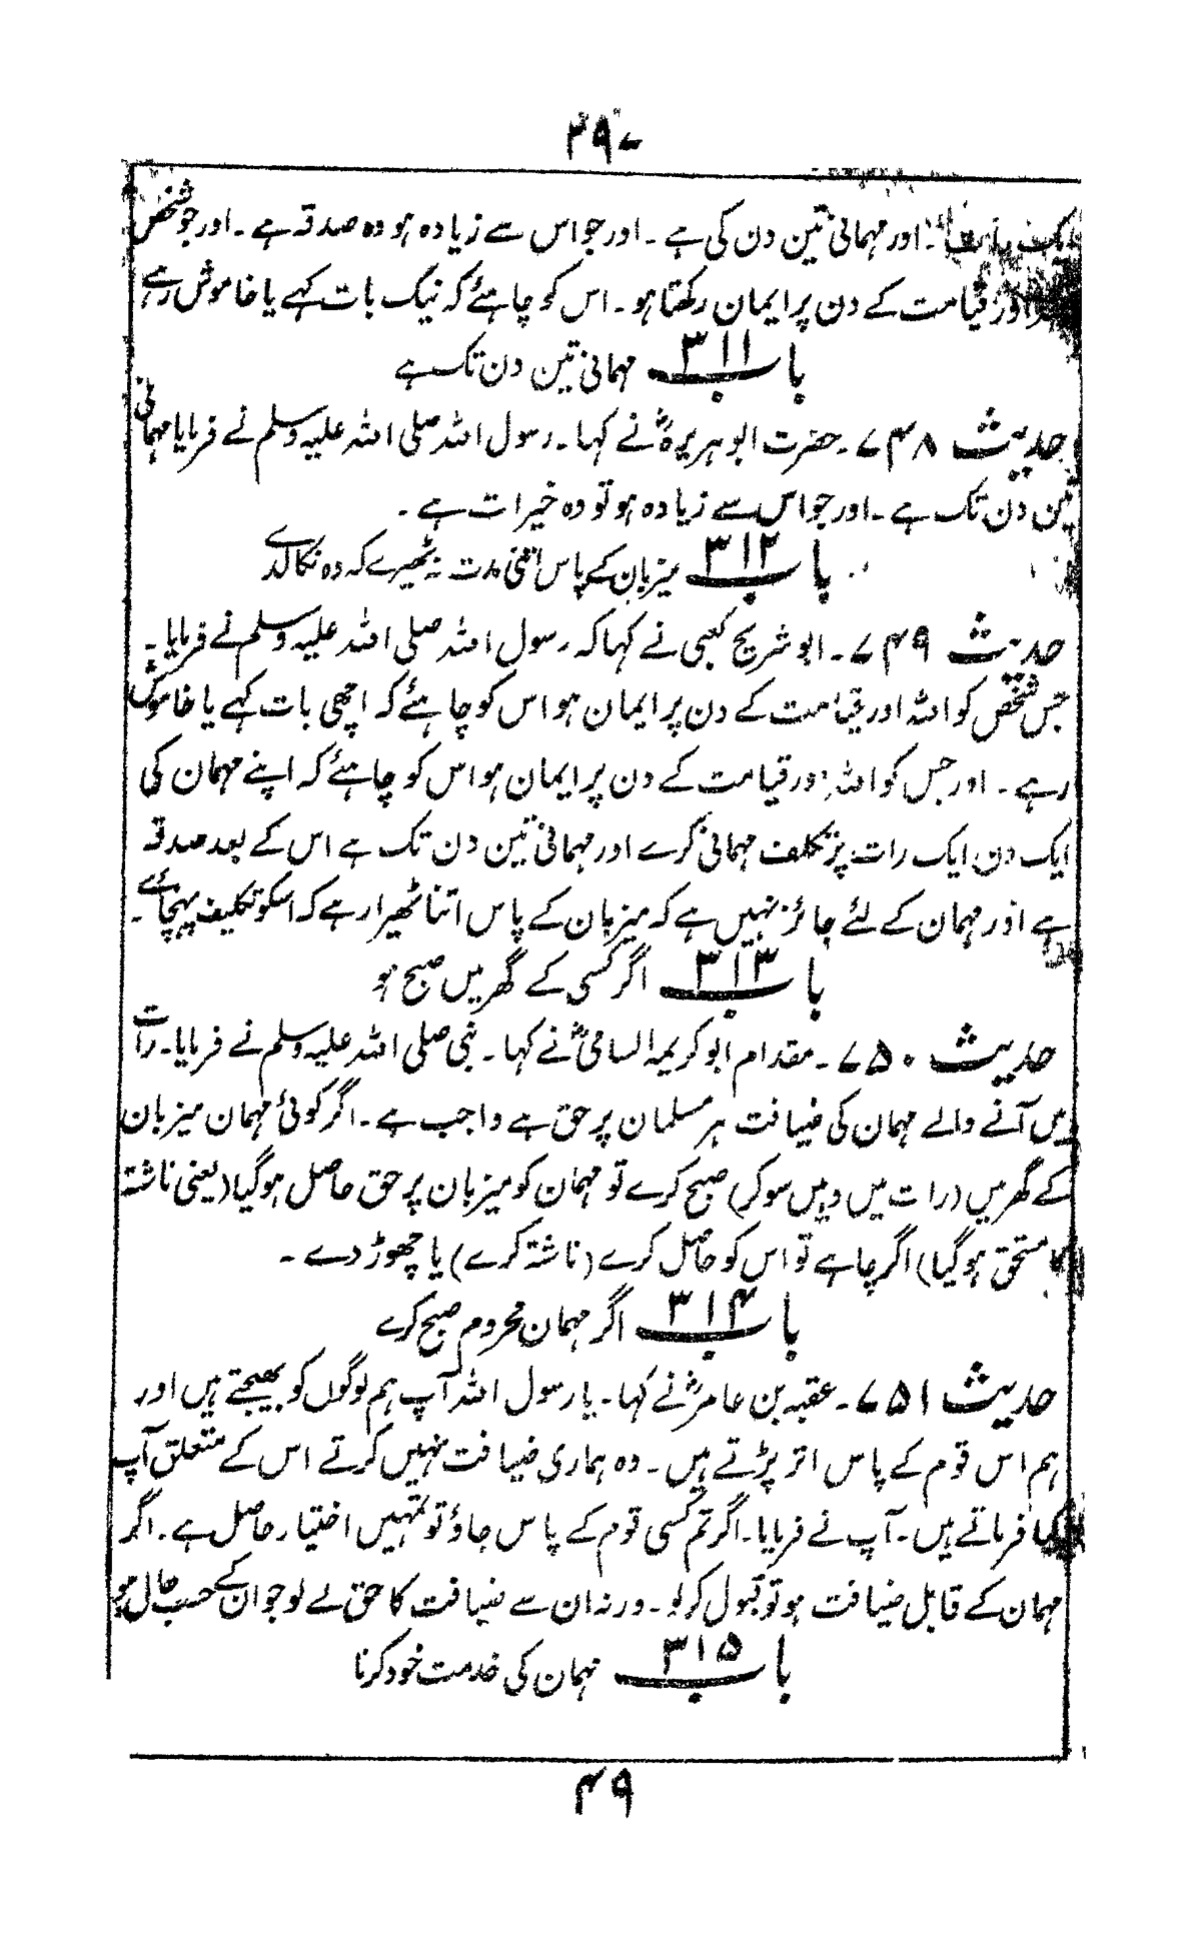 ۲۹۷
ایک رات۔ اور مہمانی تین دن کی ہے۔ اور جو اس سے زیادہ ہو وہ صدقہ ہے۔ اور جو شخص
اور قیامت کے دن پر ایمان رکھتا ہو۔ اس کو چاہئے کہ نیک بات کہے یا خاموش رہے
باب ۳۱۱ مہمانی تین دن تک ہے
حدیث ۷۴۸۔ حضرت ابو ہریرہؓ نے کہا۔ رسول اللہ صلی اللہ علیہ وسلم نے فرمایا مہمانی
تین دن تک ہے۔ اور جو اس سے زیادہ ہو تو وہ خیرات ہے۔
باب ۳۱۲ میزبان کے پاس اتنی مدت نہ ٹھیرے کہ وہ نکالدے
حدیث ۷۴۹۔ ابو شریح کعبی نے کہا کہ رسول اللہ صلی اللہ علیہ وسلم نے فرمایا۔
جس شخص کو اللہ اور قیامت کے دن پر ایمان ہو اس کو چاہئے کہ اچھی بات کہے یا خاموش
رہے۔ اور جس کو اللہ اور قیامت کے دن پر ایمان ہو اس کو چاہئے کہ اپنے مہمان کی
ایک دن ایک رات پر تکلف مہمانی کرے اور مہمانی تین دن تک ہے اس کے بعد صدقہ
ہے اور مہمان کے لئے جائز نہیں ہے کہ میزبان کے پاس اتنا ٹھیرا رہے کہ اسکو تکلیف پہنچائے۔
باب ۳۱۳ اگر کسی کے گھر میں صبح ہو
حدیث ۷۵۰۔ مقدام ابو کریمہ السامیؓ نے کہا۔ نبی صلی اللہ علیہ وسلم نے فرمایا۔ رات
میں آنے والے مہمان کی ضیافت ہر مسلمان پر حق ہے واجب ہے۔ اگر کوئی مہمان میزبان
کے گھر میں (رات میں وہیں سو کر) صبح کرے تو مہمان کو میزبان پر حق حاصل ہو گیا (یعنی ناشتہ
کا مستحق ہو گیا) اگر چاہے تو اس کو حاصل کرے (ناشتہ کرے) یا چھوڑ دے۔
باب ۳۱۴ اگر مہمان محروم صبح کرے
حدیث ۷۵۱۔ عقبہ بن عامرؓ نے کہا۔ یا رسول اللہ آپ ہم لوگوں کو بھیجتے ہیں اور
ہم اس قوم کے پاس اتر پڑتے ہیں۔ وہ ہماری ضیافت نہیں کرتے اس کے متعلق آپ
کیا فرماتے ہیں۔ آپ نے فرمایا۔ اگر تم کسی قوم کے پاس جاؤ تو تمہیں اختیار حاصل ہے۔ اگر
مہمان کے قابل ضیافت ہو تو قبول کر لو۔ ورنہ ان سے ضیافت کا حق لے لو جو ان کے حسب حال ہو
باب ۳۱۵ مہمان کی خدمت خود کرنا
۴۹